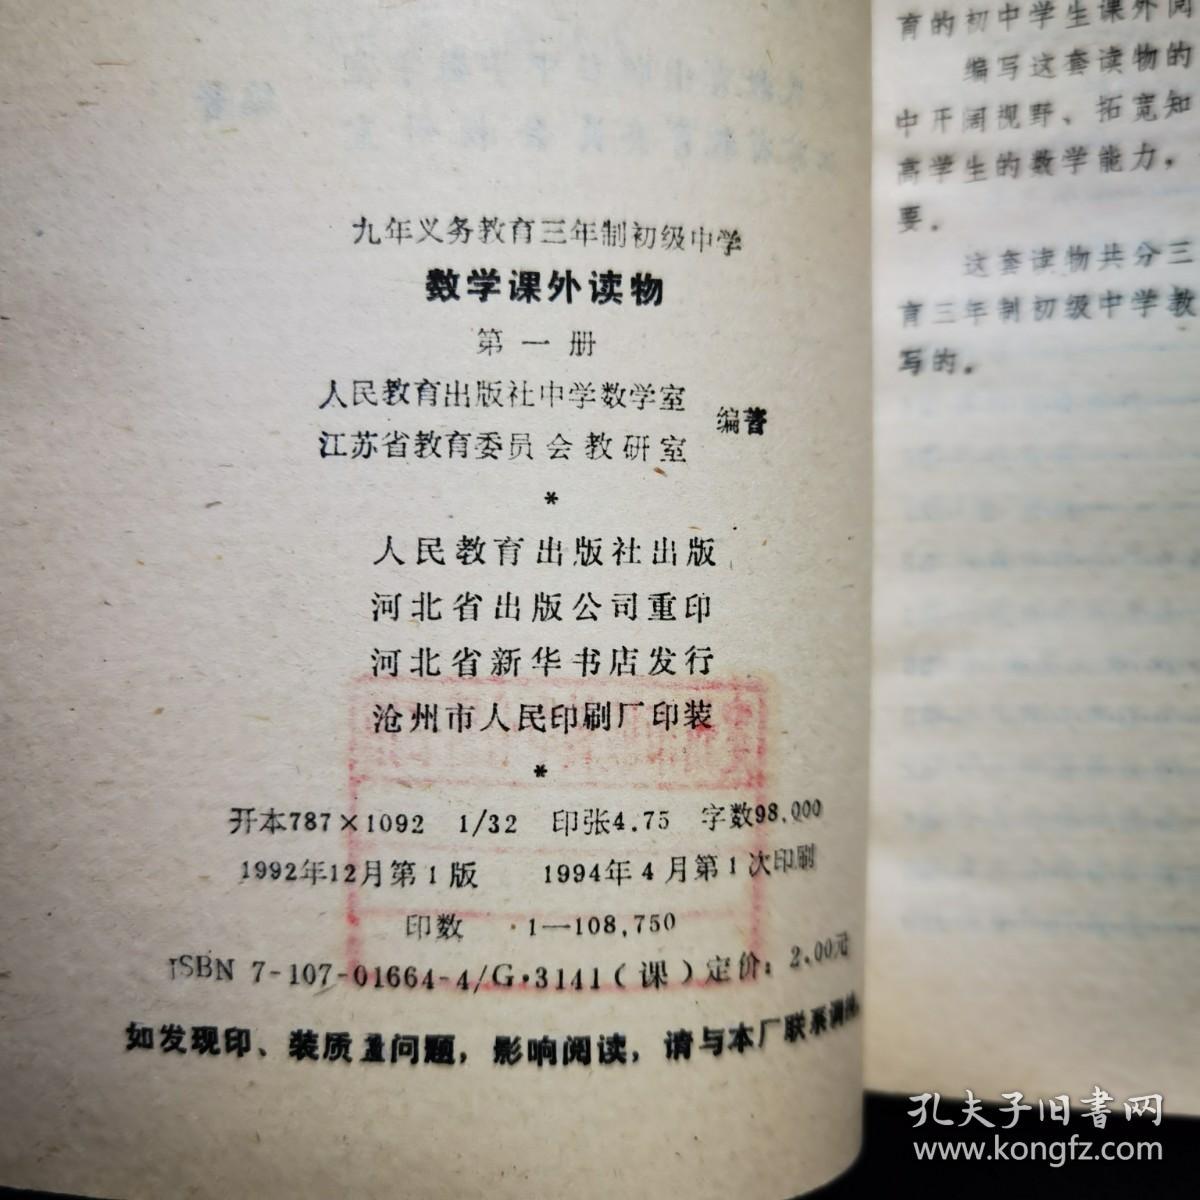 九年义务教育三年制初级中学
数学课外读物
第一册
人民教育出版社中学数学室
江苏省教育委员会教研室
编著
*
人民教育出版社出版
河北省出版公司重印
河北省新华书店发行
沧州市人民印刷厂印装
*
开本787×1092 1/32 印张4.75 字数98,000
1992年12月第1版 1994年4月第1次印刷
印数 1—108,750
ISBN 7-107-01664-4/G·3141(课)定价:2.00元
如发现印、装质量问题,影响阅读,请与本厂联系调换。
育的初中学生课外阅
编写这套读物的
中开阔视野、拓宽知
高学生的数学能力,
要。
这套读物共分三
育三年制初级中学教
写的。
孔夫子旧书网
www.kongfz.com